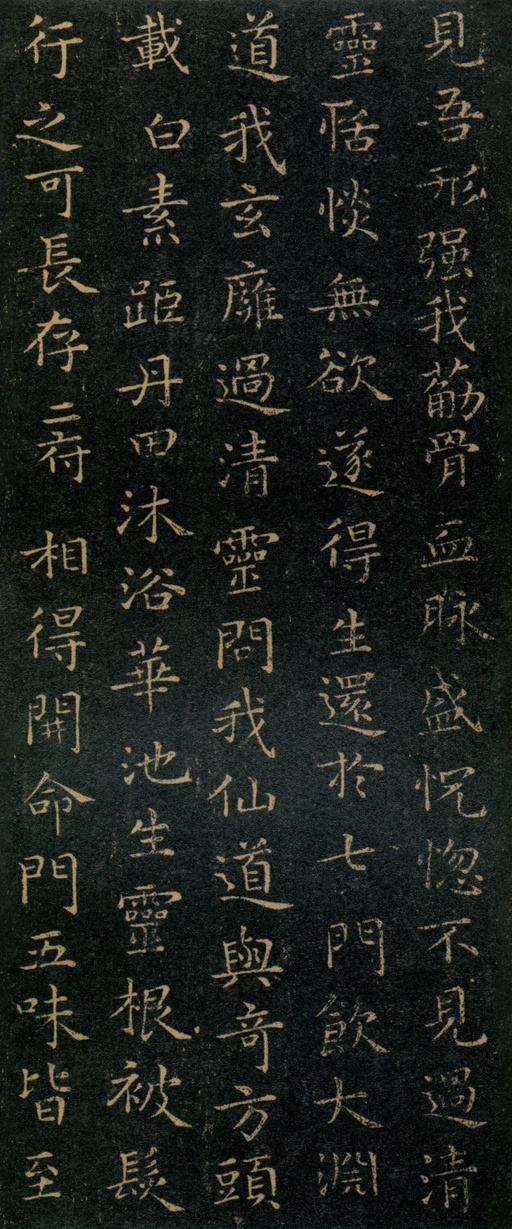 見吾形强我葋骨血眽盛怳惚不見過清
靈恬惔無欲遂得生還於七門飲大淵
道我玄廱過清靈問我仙道與竒方頭
載白素距丹田沐浴華池生靈根被髮
行之可長存二府相得開命門五味皆至